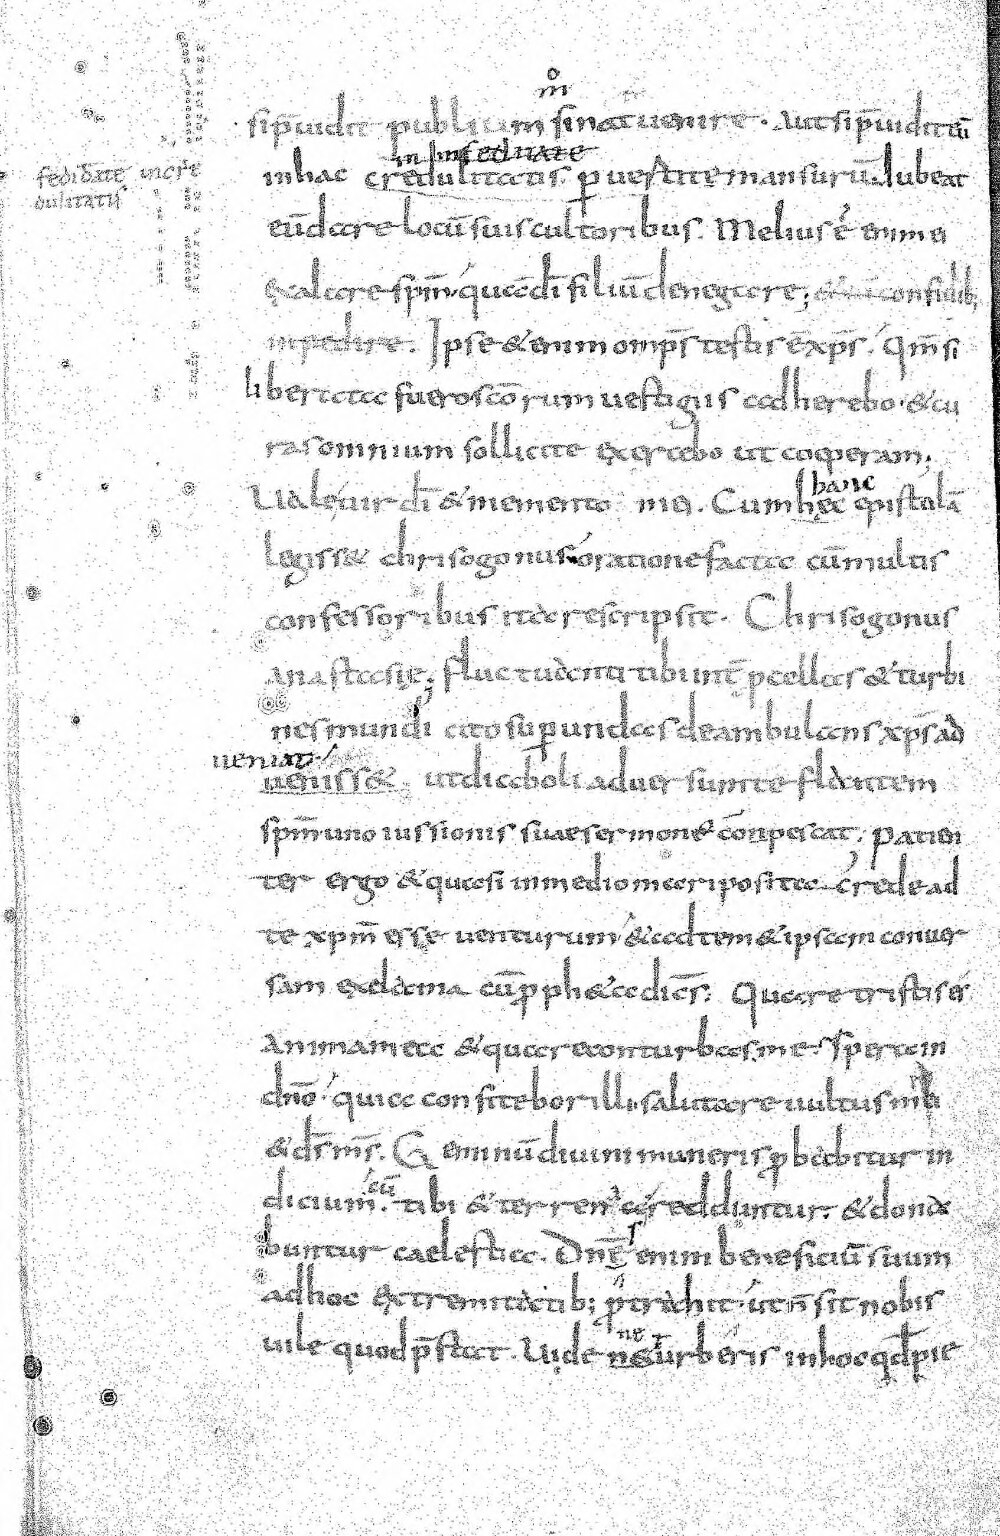 m̊
sip̄uidit publium sinat uenire. Aut sip̄uidit eū
in infeditate
inhac credulitatis. ꝑuersitate mansurū. Iubeat
fedidate incre
dulitatis
eū dare locū suis cultoribus. Melius ē enim
exalare spm̄. quā dī filiū denegare;
impedire. Ipse & enim omps̄ testis ē xp̄s. Qm̄ si
libertata fuero scōrum uestigiis adherebo. & cu
ras omnium sollicite exertebo ut coeperam;
Uale uir dī & memento mei. Cum hęc epistolā
hanc
legiss& chrisogonus oratione facta cū multis
confessoribus ita rescripsit. Chrisogonus
anastasię; fluctuanti tibi inter ꝓcellas & turbi
nes mundi cito suꝑ undas deambulans xp̄s ad
ueniat
ueniss& ut diaboli aduersum te flantem
spm̄ uno iussionis suae sermone cōnpescat. Patien
ter ergo & quasi in medio mari posita crede ad
te xpm̄ esse uenturum & ad tem&ipsam conuer
sam exclama cū ꝓph&a dicn̄s: Quare tristis es
anima mea & quare conturbas me. Spera in
dnō. quia confitebor illi salutare uultus mei
& ds̄ ms̄. Geminū diuini muneris ꝓbabitur in
dicium. cū tibi & terrena redduntur. & dona
buntur caelestia. Dns̄ enim beneficiū suum
adhoc extremitatib; ꝓtrahit. ut n̄ sit nobis
uile quod p̄stat. Uide ne turberis inhoc qd pie